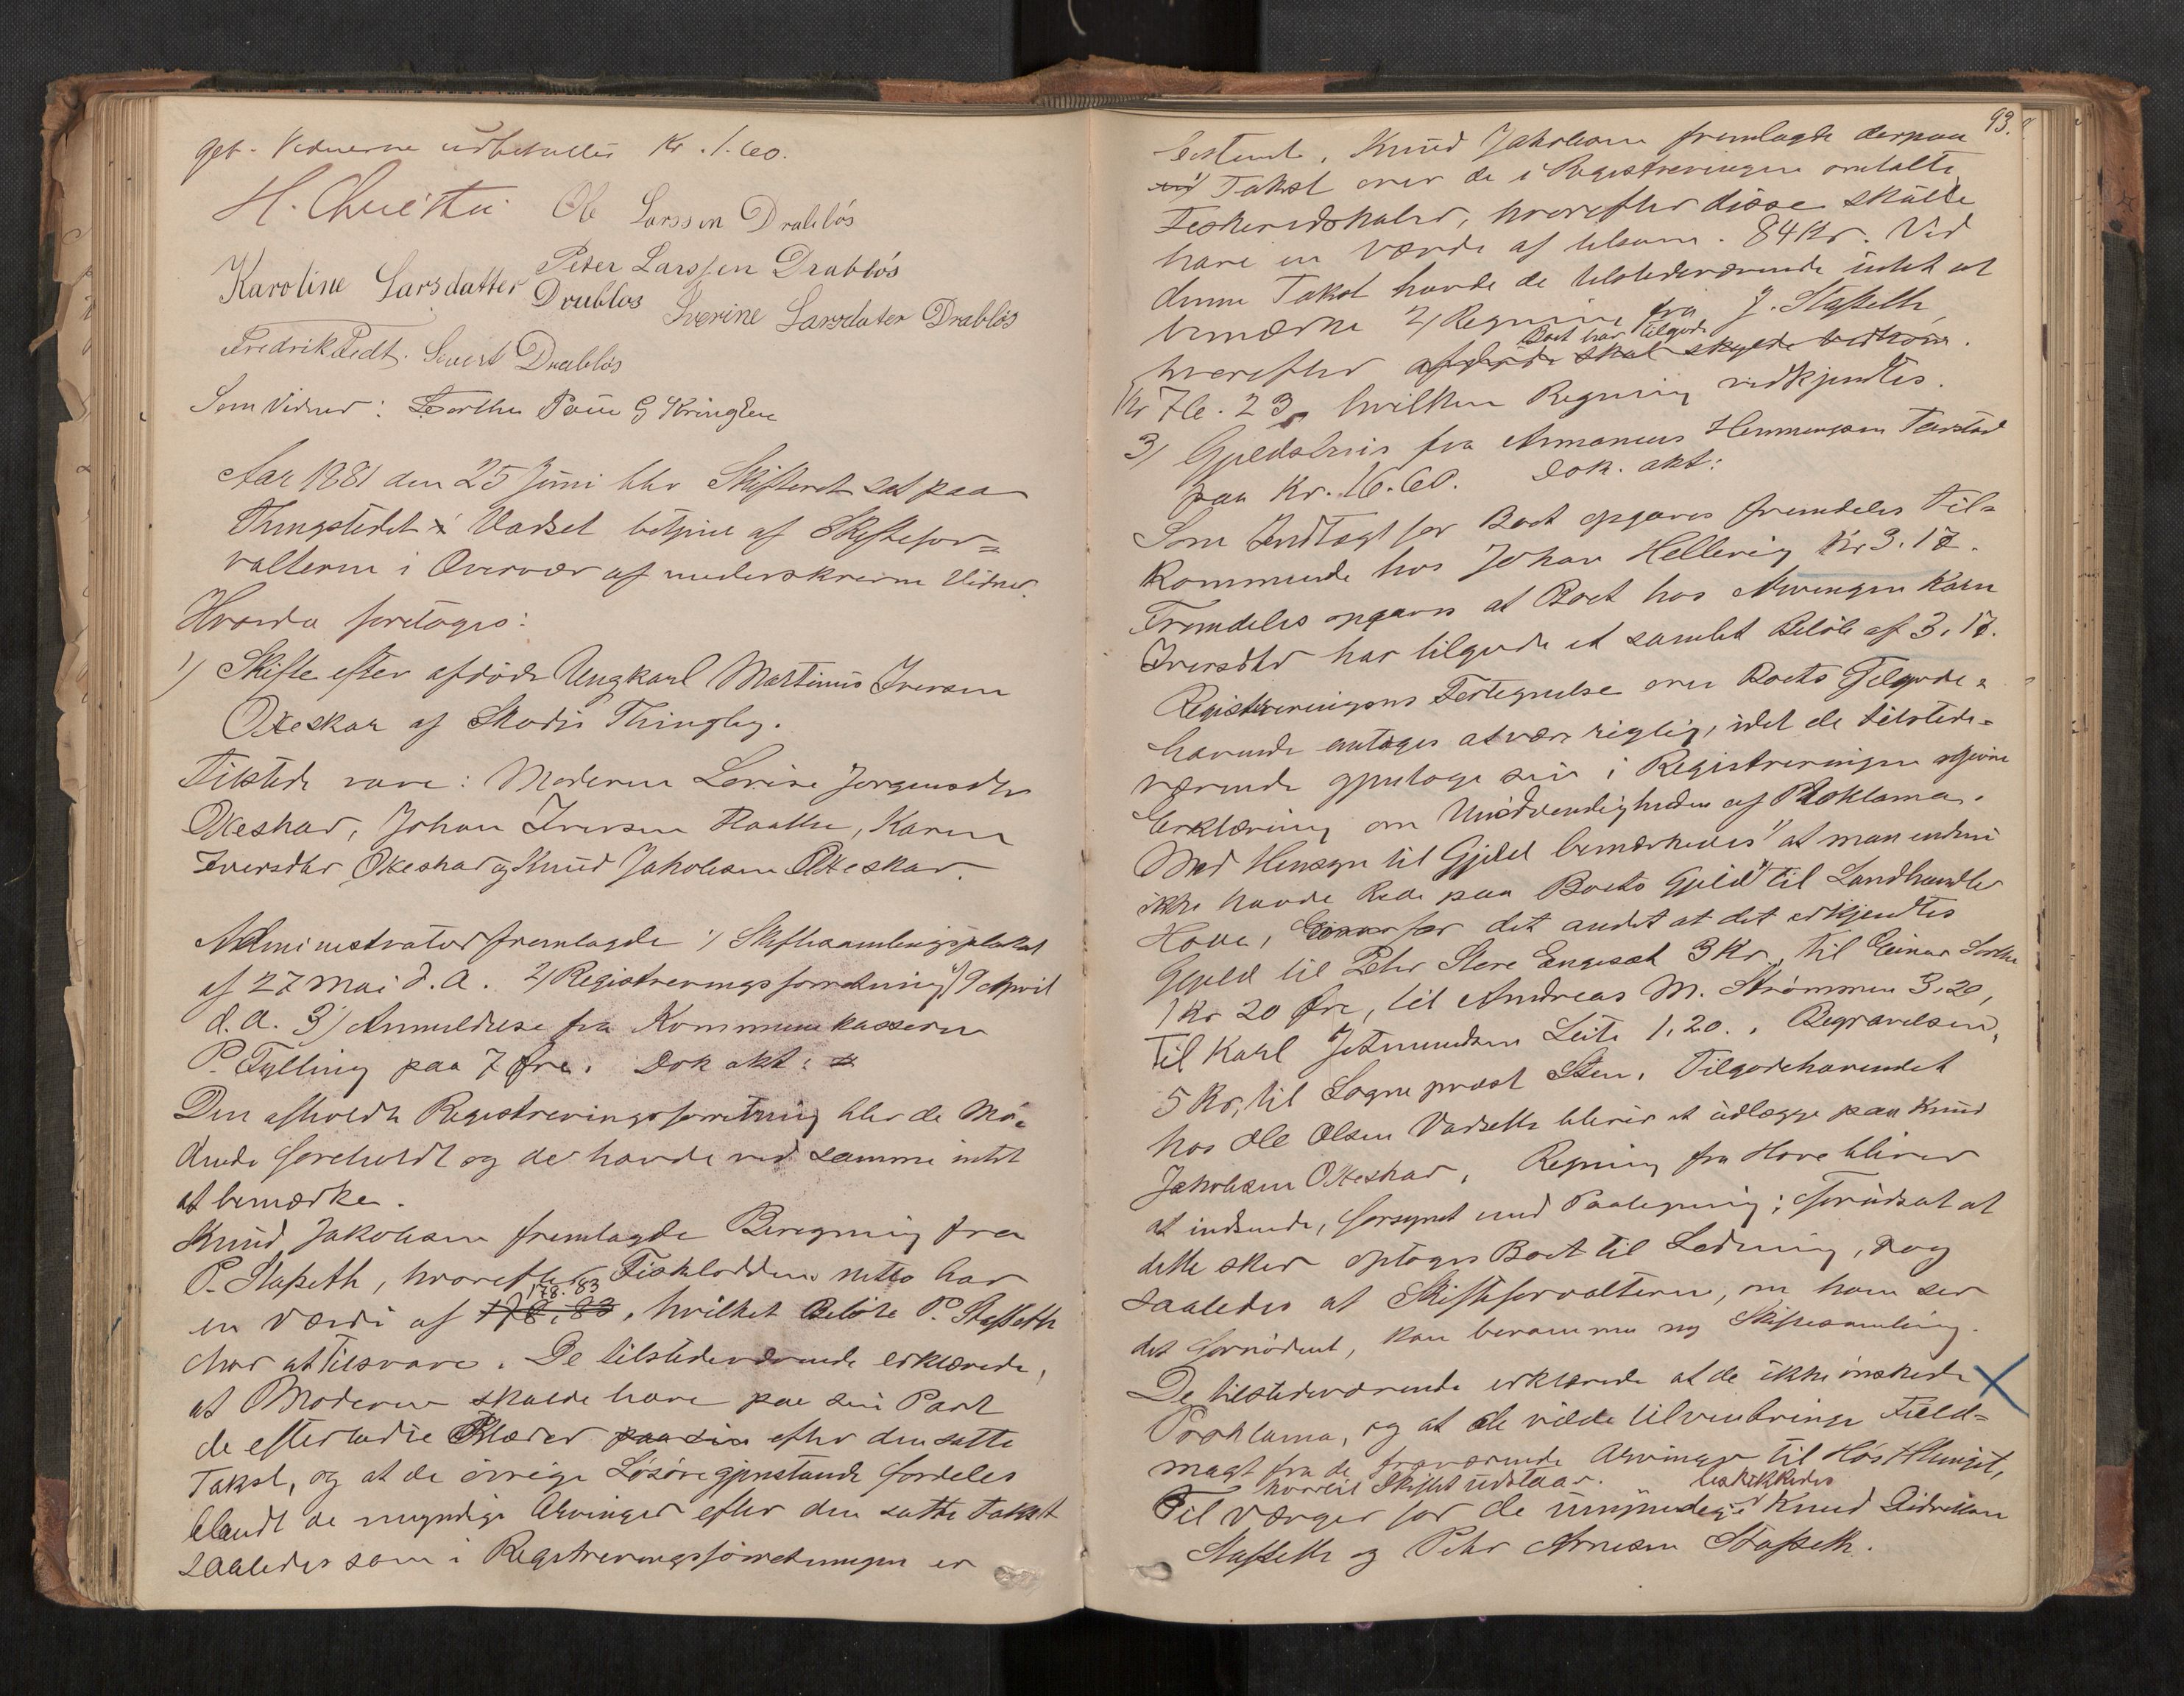 get. Vidnerne udbetaltes Kr. 1.60.
H. Christie Ole Larssen Drabløs
Karoline Larsdatter Peter Larssen Drabløs
Drabløs Iverine Larsdater Drabløs
Fredrik Sivert Drabløs
Som Vidner:
Aar 1881 den 25 Juni blev Skifteret sat paa
Thingstedet i Vadset betjent af Skiftefor=
valteren i Overvær af underskrevne Vidner.
Hvorda foretoges:
1) Skifte efter afdøde Ungkarl Martinus Iversen
Oxeskar af Skodje Thinglag.
Tilstede vare: Moderen Lovise Jørgensdtr
Oxeskar, Johan Iversen, Karen
Iversdtr Oxeskar og Knud Jakobsen Oxeskar.
Administrator fremlagde 1) Skiftesamlingsplakat
af 27 Mai d.A. 2) Registreringsforretning af 9 April
d.A. 3) Anmeldelse fra Kommunekasserer
P. Tylling paa 7 Øre. Dok akt:
Den afholdte Registreringsforretning blev de Mø=
dende foreholdt og de havde ved samme intet
at bemærke.
Knud Jakobsen fremlagde Beregning fra
P. Stafseth, hvorefter Fiskelodden netto har
178.83
en Værdi af 178.83, hvilket Beløb P. Stafseth
har at tilsvare. De tilstedeværende erklærede,
at Moderen skulde have paa sin Part
de efterladte Klæder paa sin efter den satte
Takst, og at de øvrige Løsøregjenstande fordeles
blandt de myndige Arvinger efter den satte Takst
saaledes som i Registreringsforretningen er
93.
bestemt. Knud Jakobsen fremlagde derpaa
1) Takst over de i Registreringen omtalte
Fiskeredskaber, hvorefter disse skulde
have en Værdi af tilsam. 84 Kr. Ved
denne Takst havde de tilstedeværende intet at
bemærke 2) Regning fra J. Stafseth
Boet har tilgode
hvorefter afdøde skal skylde
Kr 76.23, hvilken Regning vedkjendtes.
3) Gjeldsbevis fra Hemmingsen
paa Kr. 16.60. Dok. akt:
Som Indtægt for Boet opgaves fremdeles Til=
kommende hos Johan Hellevig Kr 3.17.
Fremdeles opgaves at Boet hos Arvingen Karen
Iversdtr har tilgode et samlet Beløb af 3.17.
Registreringens Fortegnelse over Boets Tilgode=
havende antoges at være rigtig, idet de tilstede=
værende gjentoge sin i Registreringen afgivne
Erklæring om Unødvendigheden af Proklama.
Med Hensyn til Gjeld bemærkedes at man endnu
ikke havde Rede paa Boets Gjeld til Landhandler
Hove, for det andet at det erkjendtes
Gjeld til Peter Engeset 3 Kr., til Einar
1 Kr 20 Øre, til Andreas M. Strømmen 3.20,
til Karl Leite 1.20., Begravelsen,
5 Kr, til Sogneprest Steen. Tilgodehavendet
hos Ole Olsen Vadseth bliver at udlægge paa Knud
Jakobsen Oxeskar. Regning fra Hove bliver
at indsende, forsynet med Paategning; forudsat at
dette sker optoges Boet til Slutning, dog
saaledes at Skifteforvalteren, om han ser
det fornødent, kan beramme ny Skiftesamling.
De tilstedeværende erklærede at de ikke ønskede
Proklama, og at de vilde tilveiebringe Fuld=
magt fra de fraværende Arvinger til Høstthinget,
hvortil Skiftet udstaar. beskikkedes
Til Værger for de umyndige Knud Didriksen
Stafseth og Peter Arnesen Stafseth.